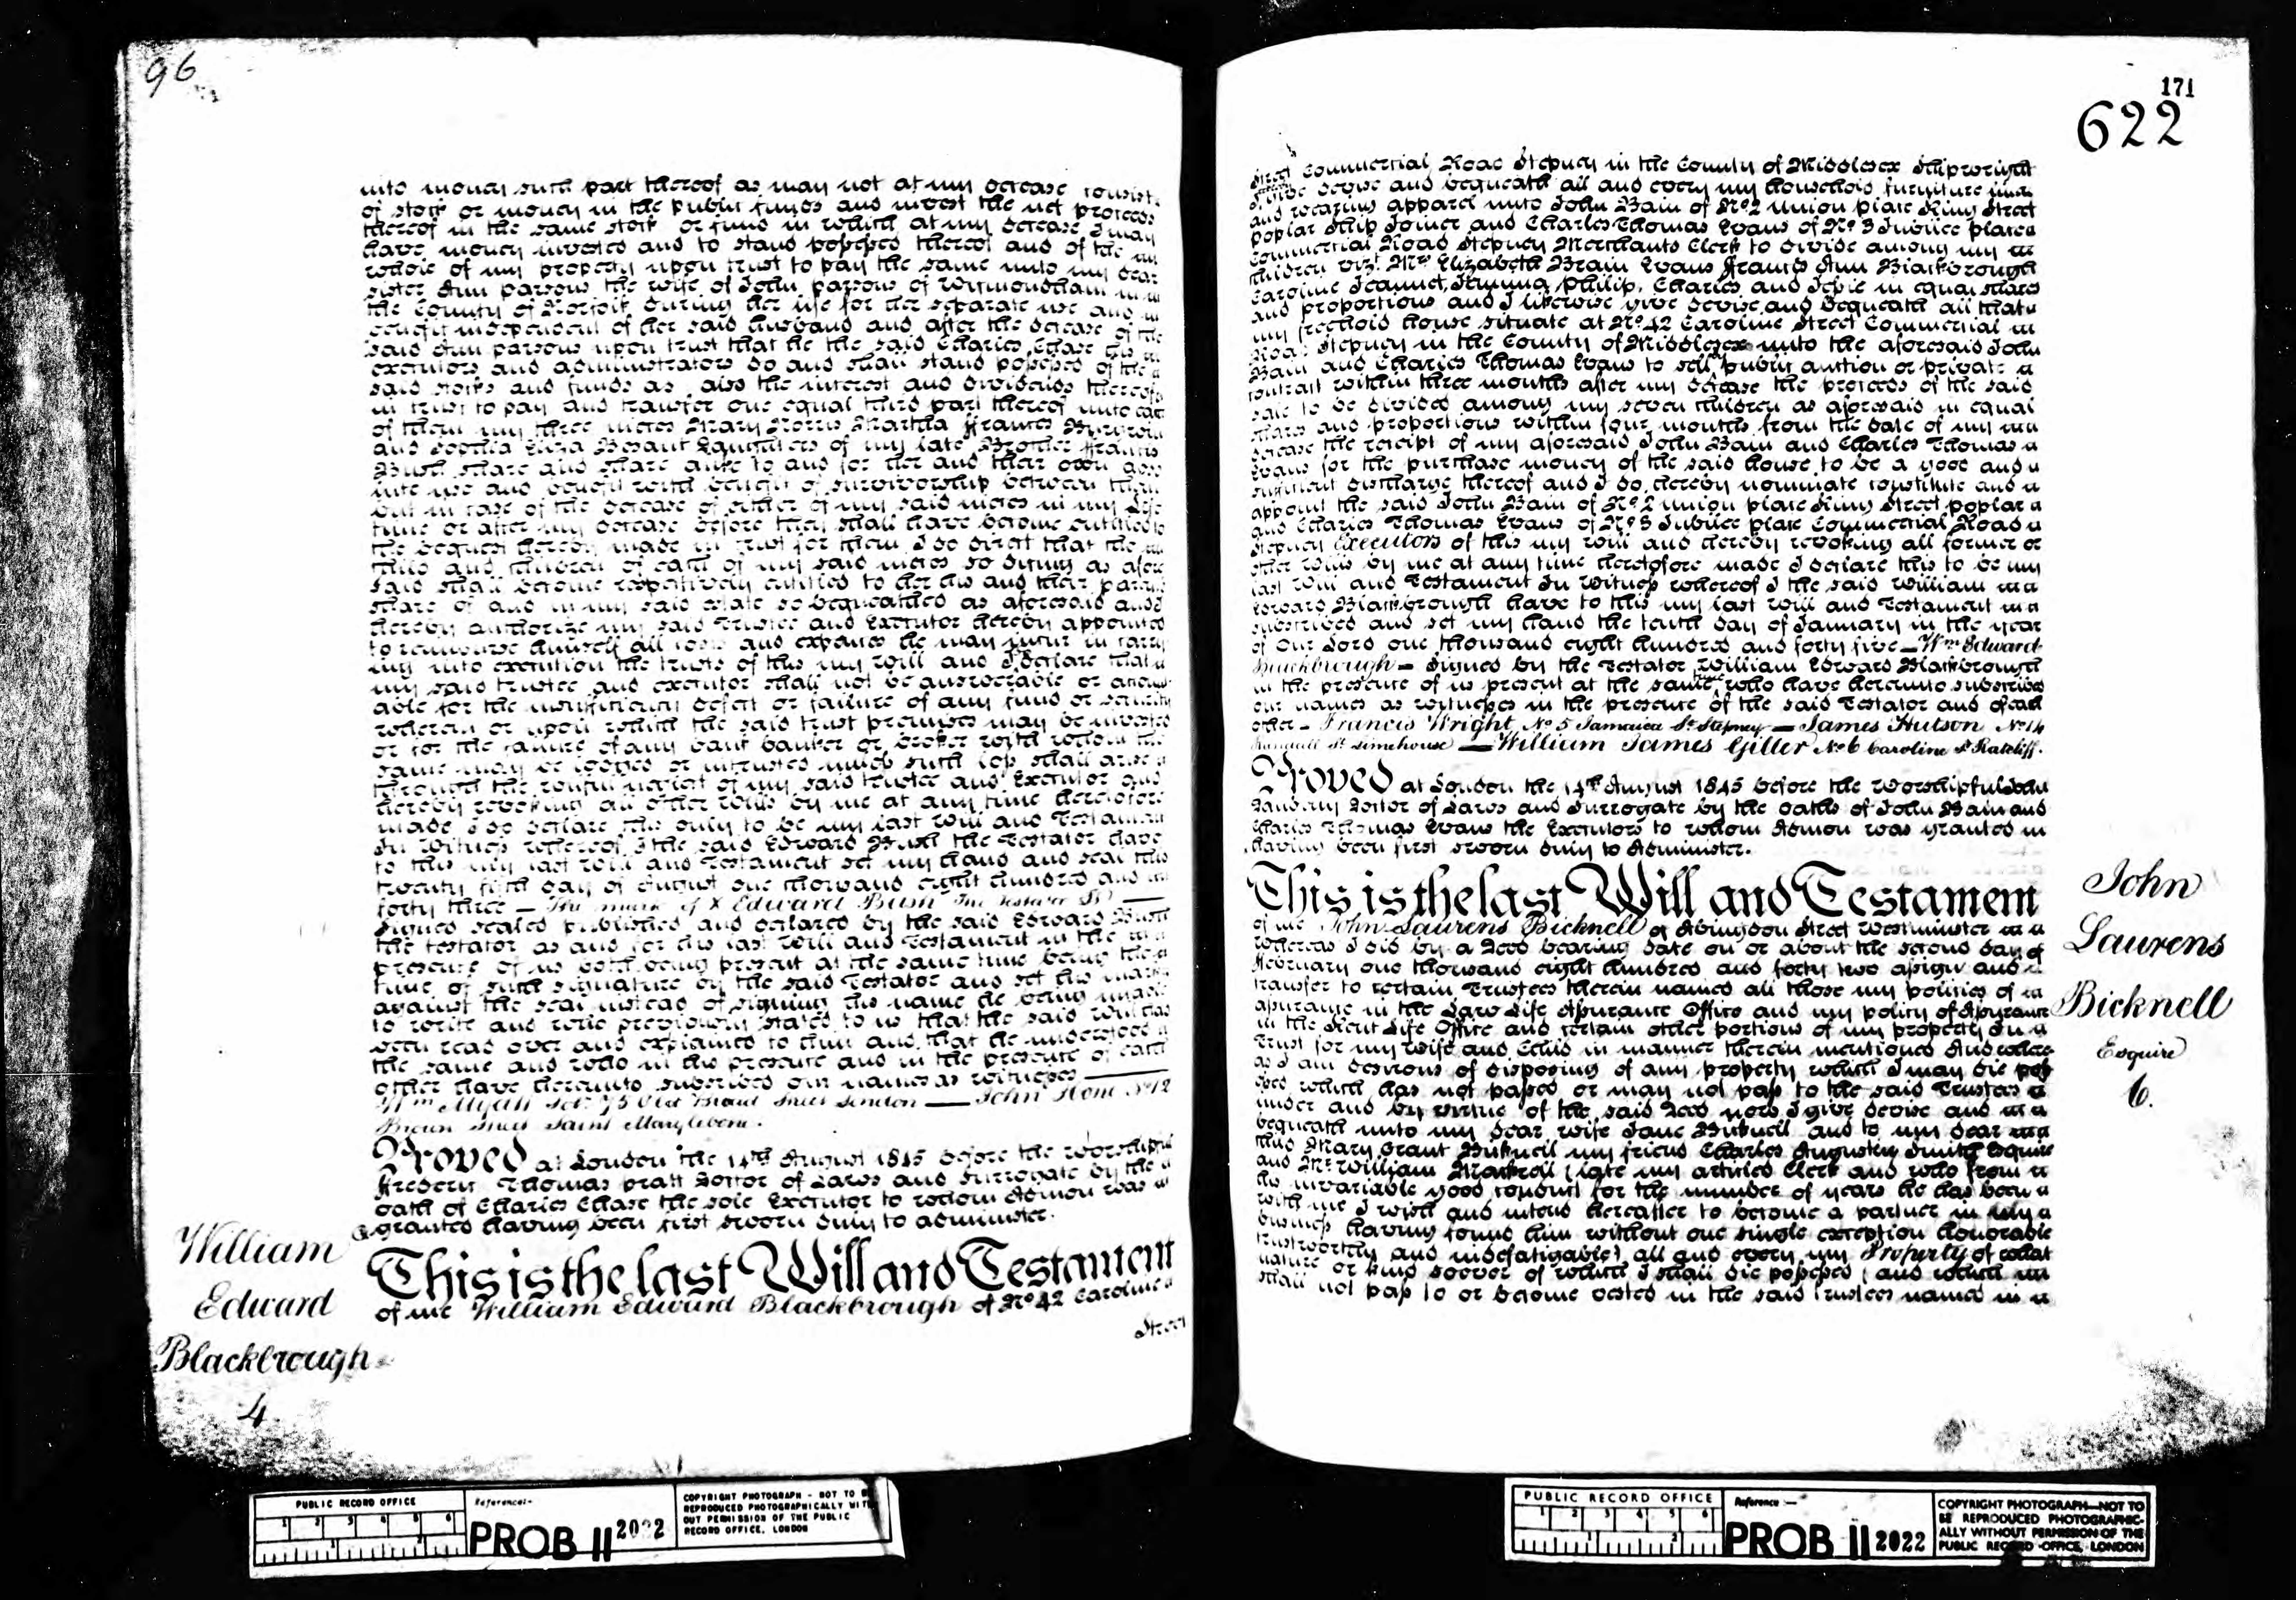 96
into money such part thereof as may not at my decease consist
of stock or money in the public funds and invest the net proceeds
thereof in the same stock or fund in which at my decease I may
have money invested and to stand possessed thereof and of the
whole of my property upon trust to pay the same unto my dear
sister Ann Parsons the wife of John Parsons of Wymondham in
the County of Norfolk during her life for her separate use and
benefit independent of her said husband and after the decease of the
said Ann Parsons upon trust that he the said Charles Chase his
executors and administrators do and shall stand possessed of the
said stocks and funds as also the interest and dividends thereof
in trust to pay and transfer one equal third part thereof unto each
of them my three nieces Mary Norris Martha Frances
and Sophia Eliza Besant Daughters of my late Brother Francis
Bush share and share alike to and for her and their own abso
lute use and benefit with benefit of survivorship between them
but in case of the decease of either of my said nieces in my life
time or after my decease before they shall have become entitled to
the bequest hereby made in trust for them I do direct that the
child and children of each of my said nieces so dying as afore
said shall become respectively entitled to her his and their parents
share of and in my said estate so bequeathed as aforesaid and I
hereby authorize my said Trustee and Executor hereby appointed
to reimburse himself all costs and expences he may incur in carry
ing into execution the trusts of this my will and I declare that
my said trustee and executor shall not be answerable or account
able for the insufficiency defect or failure of any fund or security
wherein or upon which the said trust premises may be invested
or for the failure of any bank banker or broker with whom the
same may be lodged or intrusted unless such loss shall arise
through the wilful neglect of my said trustee and Executor and
hereby revoking all other wills by me at any time heretofore
made I do declare this only to be my last will and Testament
In Witness whereof I the said Edward Bush the Testator have
to this my last will and Testament set my hand and seal this
twenty fifth day of August one thousand eight hundred and
forty three — The mark of X Edward Bush the Testator
Signed sealed published and declared by the said Edward Bush
the testator as and for his last will and Testament in the
presence of us both being present at the same time being the
time of such signature by the said Testator and set his mark
against the seal instead of signing his name he being unable
to write and who previously stated to us that the said will had
been read over and explained to him and that he understood
the same and who in his presence and in the presence of each
other have hereunto subscribed our names as witnesses
Wm Sol: 75 Old Broad Street London — John Hone No 12
Brown Street Saint Marylebone.
Proved at London the 14th August 1845 before the Worshipful
Frederic Thomas Pratt Doctor of Laws and Surrogate by the
oath of Charles Chase the sole Executor to whom Admon was
granted having been first sworn duly to administer.
William
Edward
Blackbrough
4
This is the last Will and Testament
of me William Edward Blackbrough of No 42 Caroline
Street
171
622
Street Commercial Road Stepney in the County of Middlesex Shipwright
I give devise and bequeath all and every my household furniture
and wearing apparel unto John Bain of No 2 Union place King Street
Poplar Ship Joiner and Charles Thomas Evans of No 3 Jubilee place
Commercial Road Stepney Merchants Clerk to divide among my
children vizt Mrs Elizabeth Brain Evans Francis Ann Blackbrough
Caroline Jemima Philip, Charles and in equal shares
and proportions and I likewise give devise and bequeath all that
my freehold house situate at No 42 Caroline Street Commercial
Road Stepney in the County of Middlesex unto the aforesaid John
Bain and Charles Thomas Evans to sell public auction or private
contract within three months after my decease the proceeds of the said
sale to be divided among my seven children as aforesaid in equal
shares and proportions within four months from the date of my
decease the receipt of my aforesaid John Bain and Charles Thomas
Evans for the purchase money of the said house to be a good and
sufficient discharge thereof and I do hereby nominate constitute and
appoint the said John Bain of No 2 Union place King Street poplar
and Charles Thomas Evans of No 3 Jubilee place Commercial Road
Stepney Executors of this my will and hereby revoking all former or
other wills by me at any time heretofore made I declare this to be my
last will and Testament In Witness whereof I the said William
Edward Blackbrough have to this my last will and Testament
subscribed and set my hand the tenth day of January in the year
of Our Lord one thousand eight hundred and forty five — Wm Edward
Blackbrough — Signed by the Testator William Edward Blackbrough
in the presence of us present at the same time who have hereunto subscribed
our names as witnesses in the presence of the said Testator and of each
other — Francis Wright No 5 Jamaica St Stepney — James Hutson No 14
Randall St Limehouse — William James Giller No 6 Caroline St Ratcliff.
Proved at London the 14th August 1845 before the Worshipful John
Daubeny Doctor of Laws and Surrogate by the oaths of John Bain and
Charles Thomas Evans the Executors to whom Admon was granted
having been first sworn duly to Administer.
This is the last Will and Testament
John
Laurens
Bicknell
Esquire
6.
of me John Laurens Bicknell of Abingdon Street Westminster
Whereas I did by a Deed bearing date on or about the second day of
February one thousand eight hundred and forty two assign and
transfer to certain Trustees therein named all those my policies of
assurance in the Law Life Assurance Office and my policy of Assurance
in the Kent Life Office and certain other portions of my property In
Trust for my wife and Child in manner therein mentioned And where
as I am desirous of disposing of any property which I may die poss
essed which has not passed or may not pass to the said Trustees
under and by virtue of the said Deed now I give devise and
bequeath unto my dear wife Jane Bicknell and to my dear
child Mary Grant Bicknell my friend Charles Augustin Smith Esquire
and Mr William Mackrell (late my articled Clerk and who from
his invariable good conduct for the number of years he has been
with me I wish and intend hereafter to become a partner in my
business having found him without one single exception honorable
trustworthy and indefatigable) all and every my Property of what
nature or kind soever of which I shall die possessed (and which
shall not pass to or become vested in the said Trustees named in
PUBLIC RECORD OFFICE
Reference:-
PROB 11 2022
COPYRIGHT PHOTOGRAPH - NOT TO BE
REPRODUCED PHOTOGRAPHICALLY WITH-
OUT PERMISSION OF THE PUBLIC
RECORD OFFICE, LONDON
PUBLIC RECORD OFFICE
Reference:-
PROB 11 2022
COPYRIGHT PHOTOGRAPH—NOT TO
BE REPRODUCED PHOTOGRAPHIC-
ALLY WITHOUT PERMISSION OF THE
PUBLIC RECORD OFFICE, LONDON